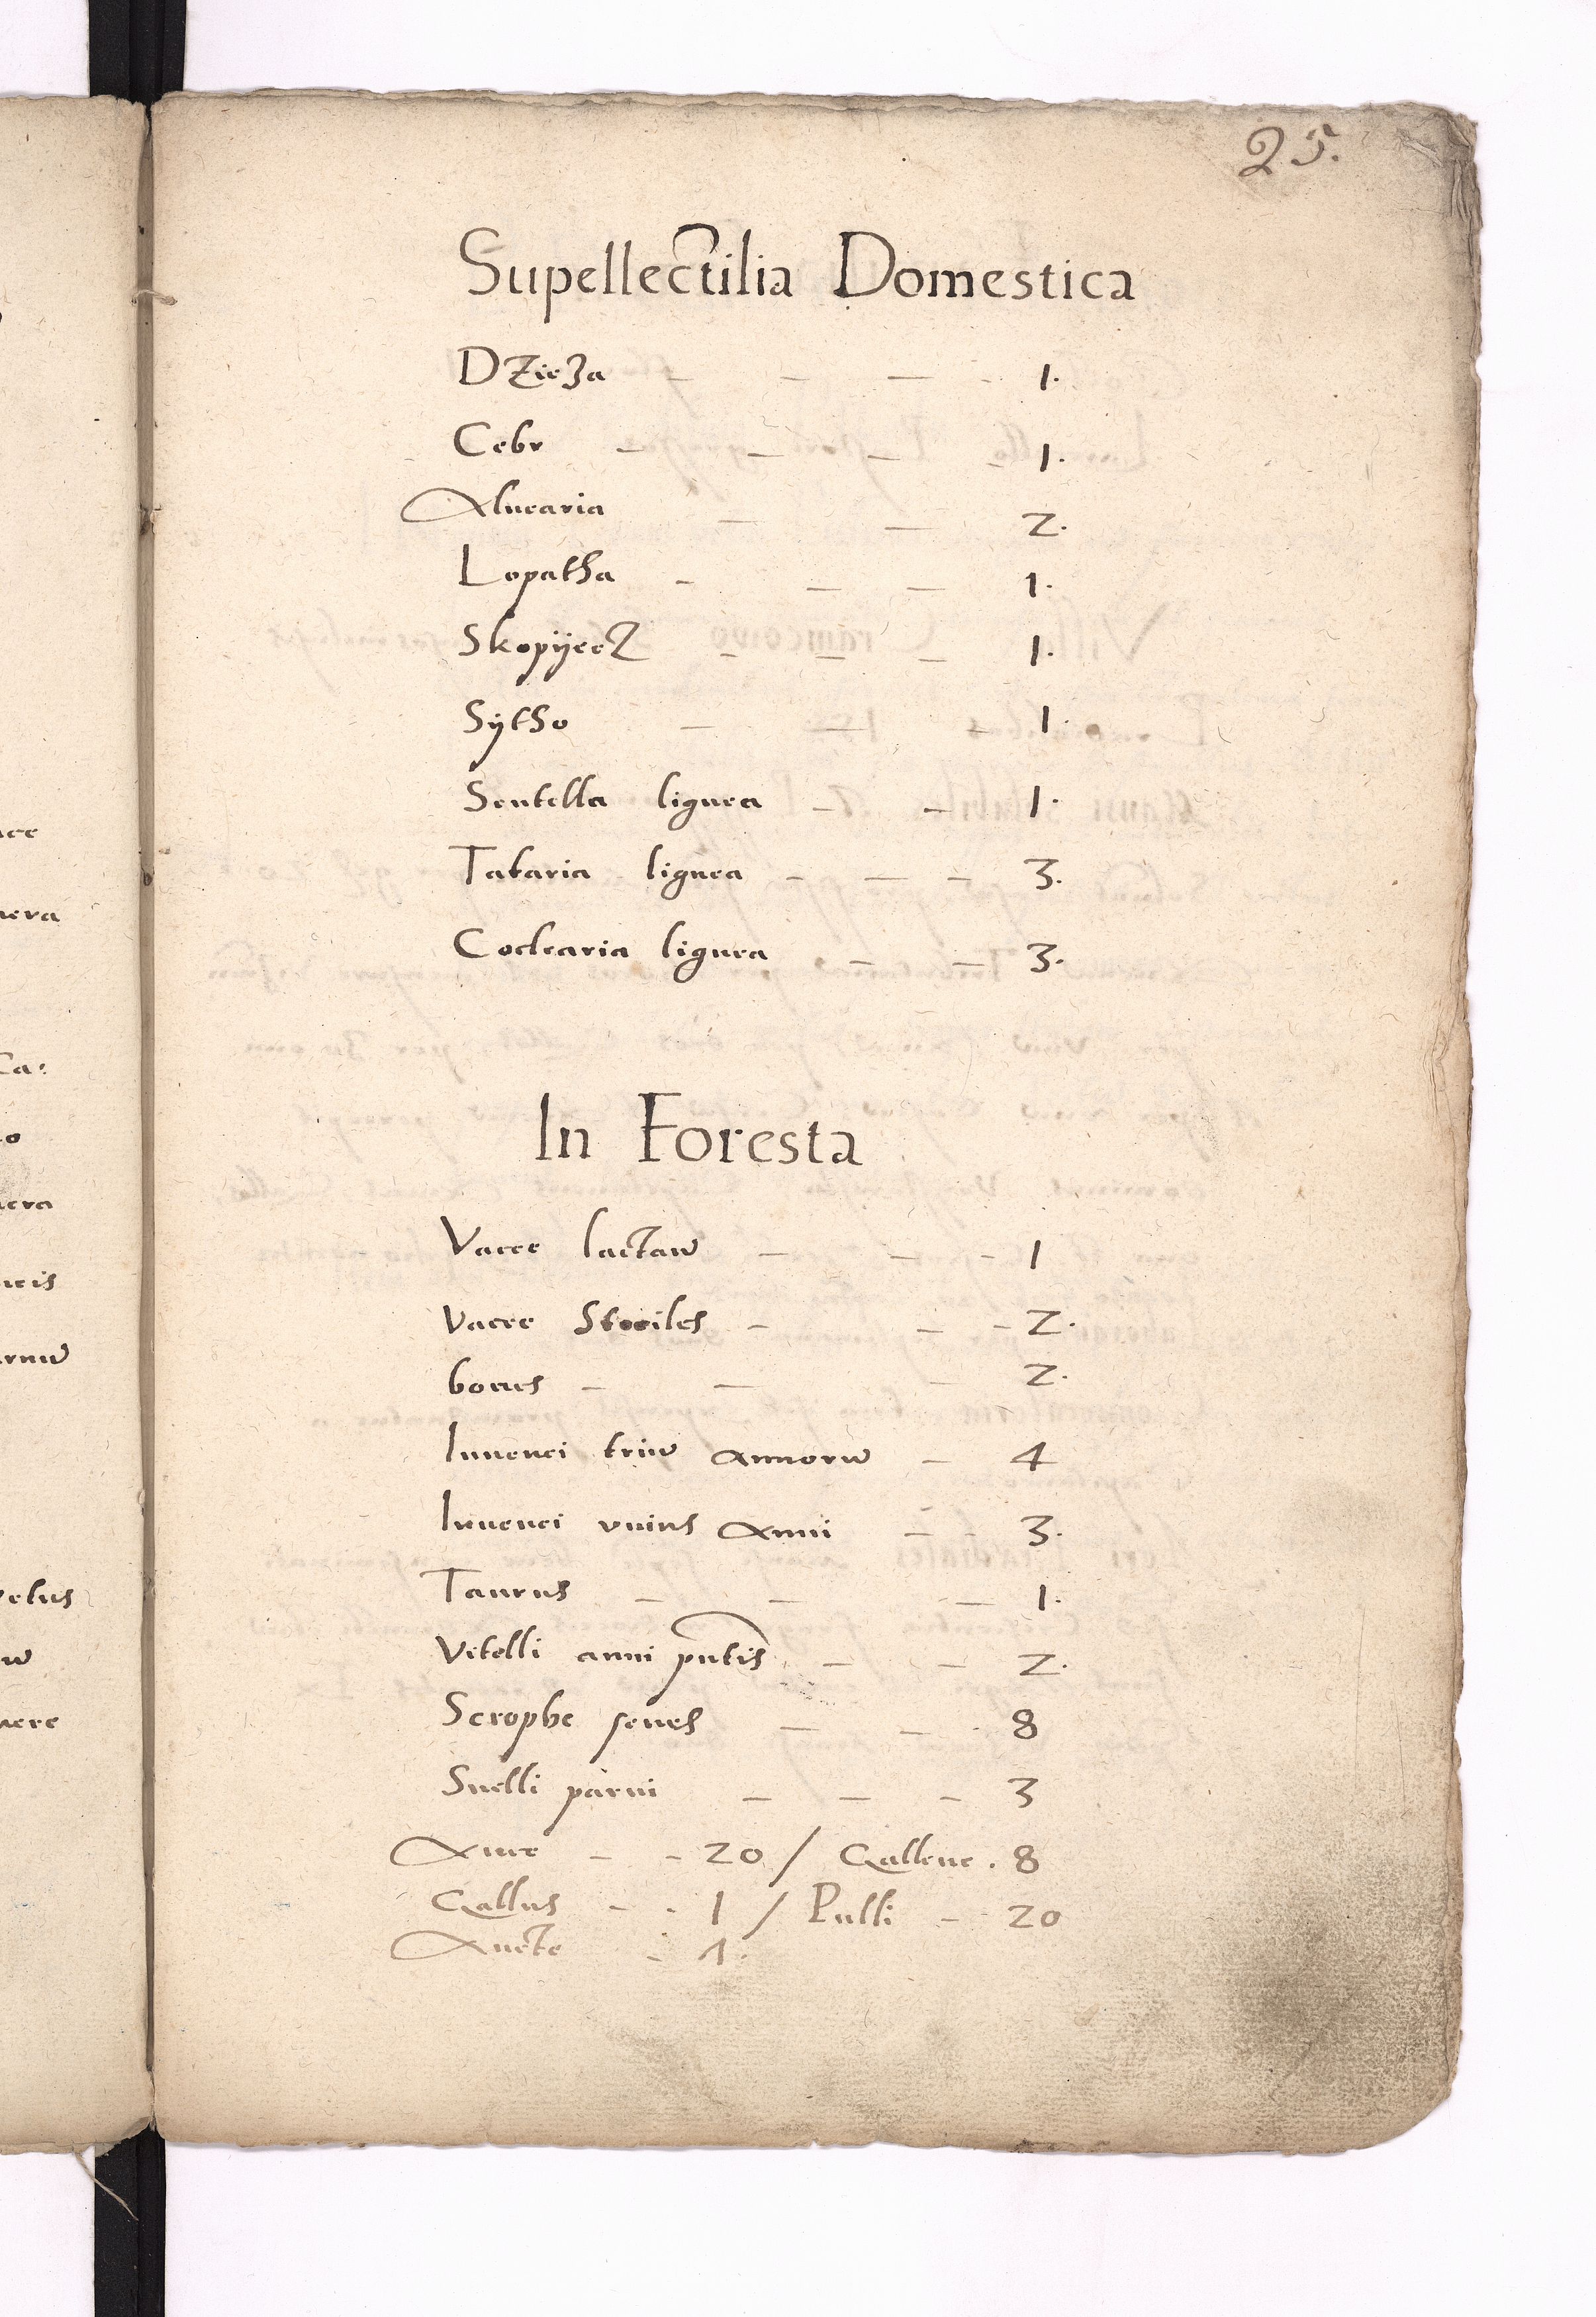 25.
Supellectilia Domestica
Dzieza - - - - 1.
Cebr - - - - 1.
Aluearia - - 2.
Lopatha - - - 1.
Skopyecz - - - 1.
Sytho - - - 1.
Scutella lignea - - 1.
Taťaria lignea - - - 3.
Coclearia lignea - - 3.
In Foresta
Vacce lactaw - - - 1
Vacce Steriles - - - 2.
boues - - - 2.
Iuuenci triw annorw - 4
Iuuenci vnius anni - - 3.
Taurus - - - 1.
Vitelli anni pntis - - 2.
Scrophe senes - - 8
Suelli parui - - - 3
Auce - - 20 / Gallene . 8
Gallus - - 1 / Pulli - 20
Anete - 4.